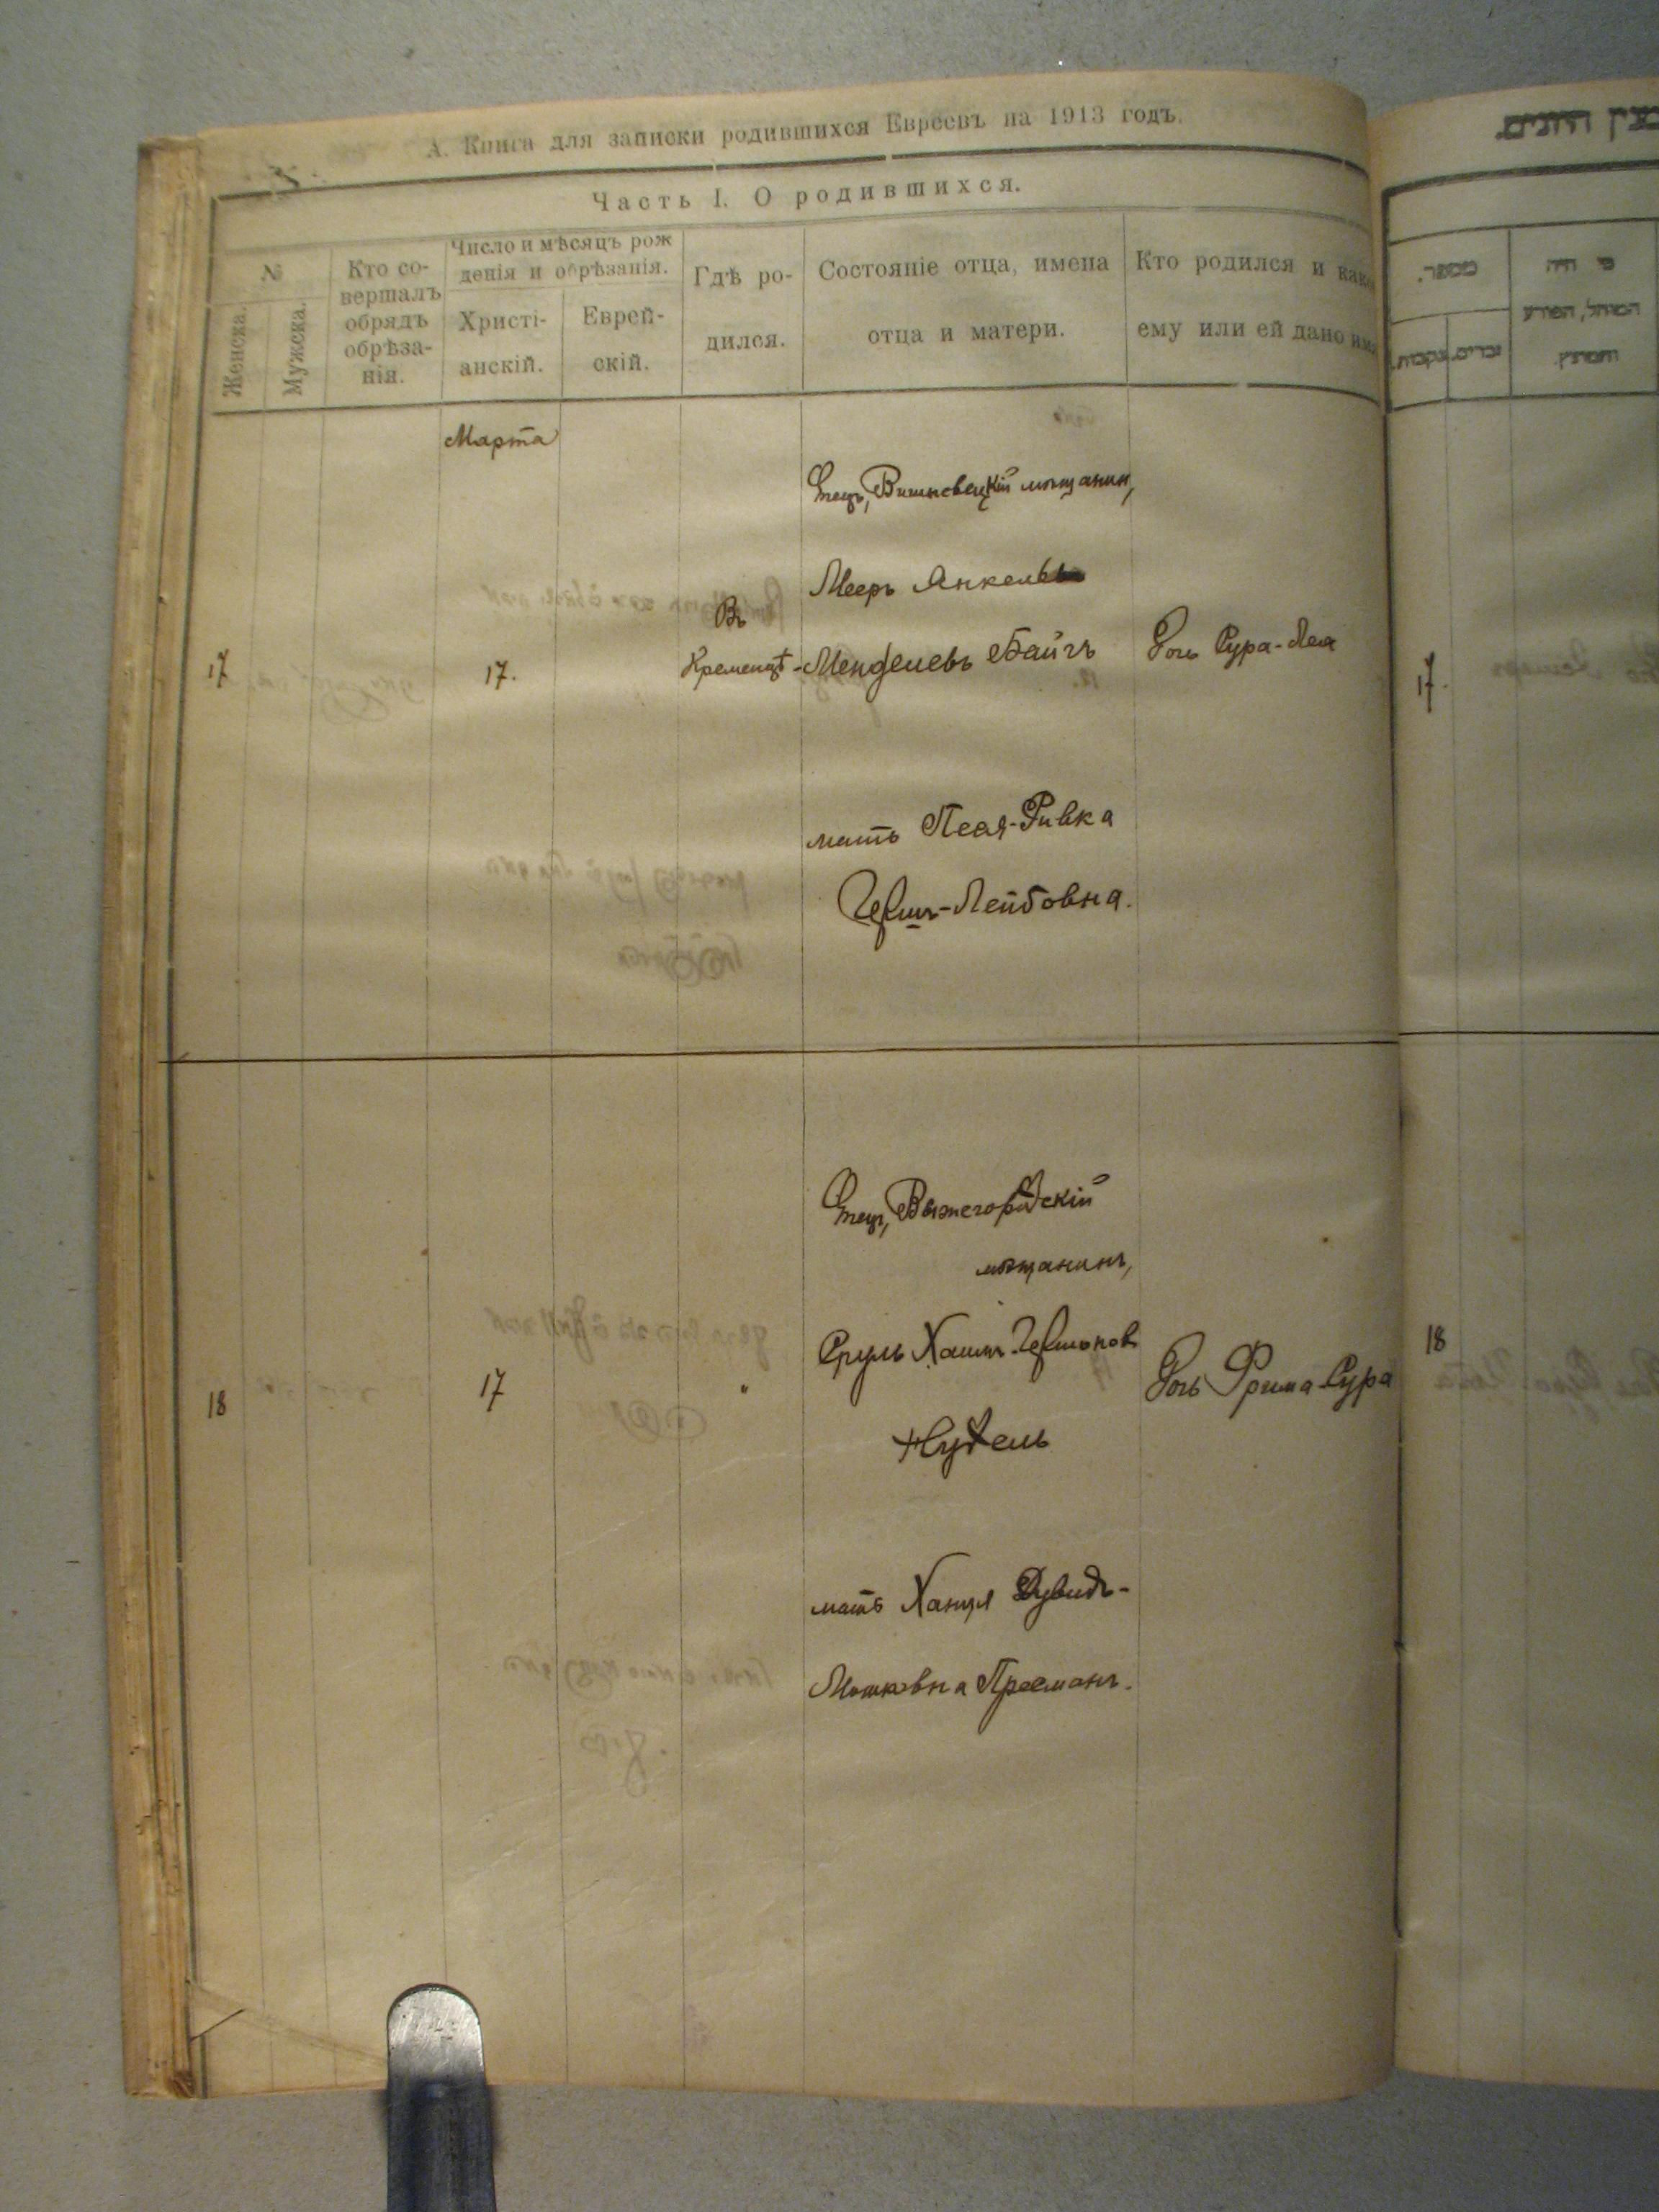 А. Книга для записки родившихся Евреевъ на 1913 годъ.
Часть I. О родившихся.
№
Женска.
Мужска.
Кто со-
вершалъ
обрядъ
обрѣза-
нія.
Число и мѣсяцъ рож
денія и обрѣзанія.
Христі-
анскій.
Еврей-
скій.
Гдѣ ро-
дился.
Состояніе отца, имена
отца и матери.
Кто родился и како
ему или ей дано имя
Марта
17
17.
Въ
Кременцѣ
Отецъ, Вишневецкій мѣщанин,
Мееръ Янкель
Менделевъ Байчъ
мать Песя-Ривка
Герш-Лейбовна.
Дочь Сура-Лея
18
17
"
Отецъ, Вышегородскій
мѣщанинъ,
Сруль Хаимъ-Гершонов
Нудель
мать Ханця Дувидъ-
Мошковна Пресманъ.
Дочь Фрима-Сура
מספר.
נקבות.
זכרים.
מי היה
המוהל, הפורע
והמוצץ.
17
18